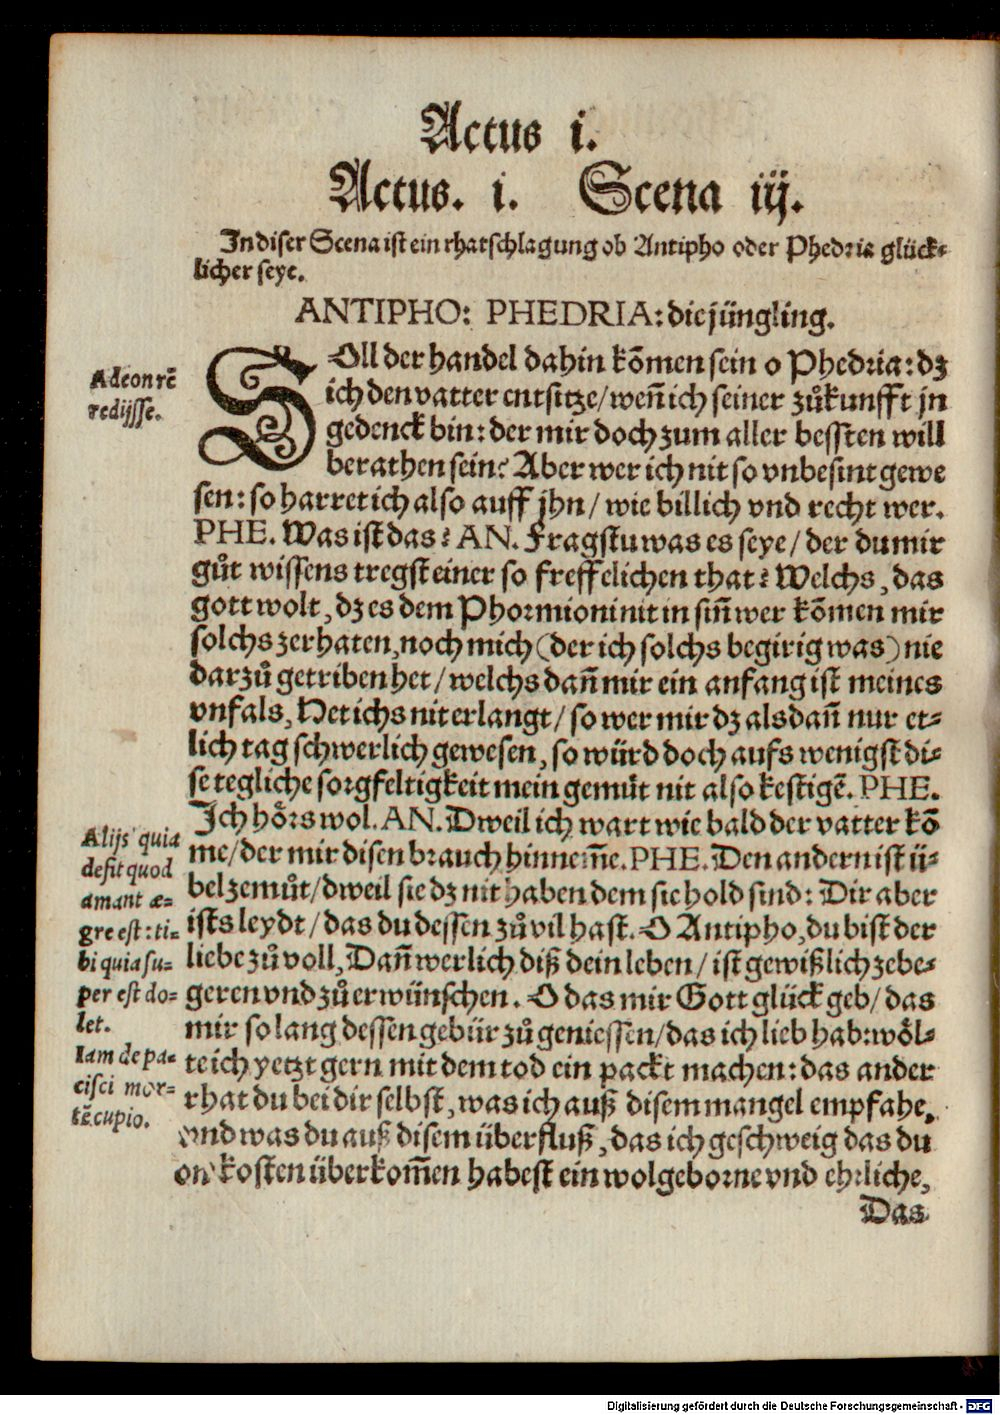 Actus i.
Actus. i. Scena iij.
In diser Scena ist ein rhatschlagung ob Antipho oder Phedria glück-
licher seye.
ANTIPHO: PHEDRIA: die jüngling.
Adeon rē
redijsse.
SOll der handel dahin kōmen sein o Phedria: dz
ich den vatter entsitze/ weñ ich seiner zůkunfft jn
gedenck bin: der mir doch zum aller bessten will
berathen sein? Aber wer ich nit so vnbesint gewe
sen: so harret ich also auff jhn/ wie billich vnd recht wer.
PHE. Was ist das? AN. Fragstu was es seye/ der du mir
gůt wissens tregst einer so freffelichen that? Welchs, das
gott wolt, dz es dem Phormioni nit in siñ wer kōmen mir
solchs zerhaten, noch mich (der ich solchs begirig was) nie
darzů getriben het/ welchs dañ mir ein anfang ist meines
vnfals, Het ichs nit erlangt/ so wer mir dz alsdañ nur et-
lich tag schwerlich gewesen, so würd doch aufs wenigst di-
se tegliche sorgfeltigkeit mein gemůt nit also kestigē. PHE.
Ich hörs wol. AN. Dweil ich wart wie bald der vatter kō
me/ der mir disen brauch hinnem̃e. PHE. Den andern ist ü-
bel zemůt/ dweil sie dz nit haben dem sie hold sind: Dir aber
ists leydt/ das du dessen zů vil hast. O Antipho, du bist der
liebe zů voll, Dañ werlich diß dein leben/ ist gewißlich zebe-
geren vnd zů erwünschen. O das mir Gott glück geb/ das
mir so lang dessen gebür zů geniessen/ das ich lieb hab: wöl-
te ich yetzt gern mit dem tod ein packt machen: das ander
rhat du bei dir selbst, was ich auß disem mangel empfahe,
vnd was du auß disem überfluß, das ich geschweig das du
on kosten überkom̃en habest ein wolgeborne vnd ehrliche,
Das
Alijs quia
defit quod
amant æ-
gre est: ti-
bi quia su-
per est do-
let.
Iam de pa-
cisci mor-
tē cupio.
Digitalisierung gefördert durch die Deutsche Forschungsgemeinschaft - DFG